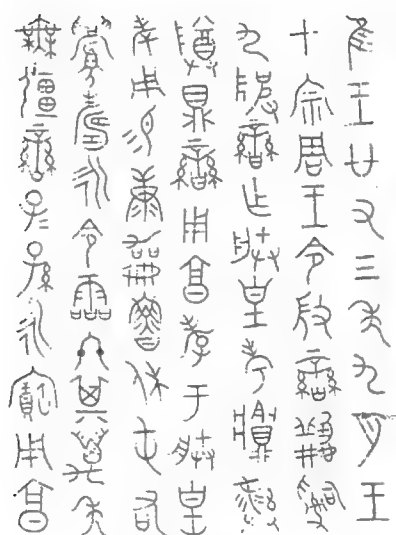 隹王廿又三年九月王
才宗周王令𢼸䜌𤔲
九陂䜌乍朕皇考䵼彝
尊鼎䜌用享孝于朕皇
考用易康魯休屯右
眉壽永令霝冬其萬年
無疆䜌子孫永寶用享